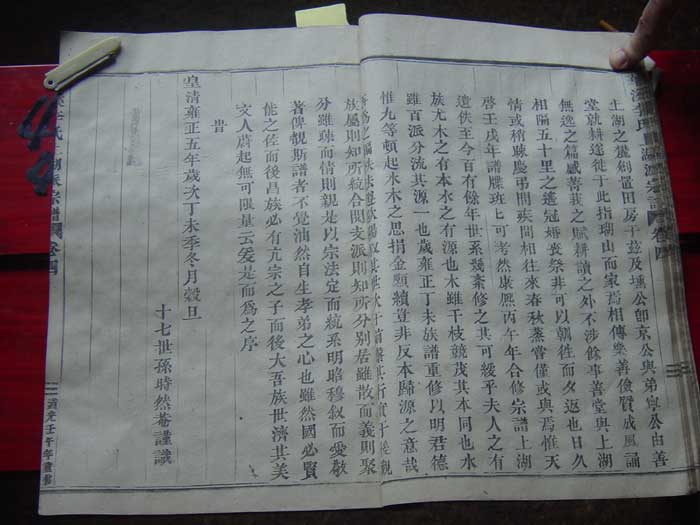 上湖之麓剏置田房于兹及璚公卽京公與弟寧公由善
堂就耕逵徙于此指瑚山而家焉相傳樂善儉賢成風誦
無逸之篇感菁莪之賦耕讀之外不涉餘事善堂與上湖
相隔五十里之遙冠婚喪祭非可以朝徃而夕返也日久
情或稍睞慶弔問疾間相往來春秋蒸嘗僅或與焉惟天
啓壬戌年譜牒班匕可考然康熙丙午年合修宗譜上湖
遺佚至今百有餘年世系幾紊修之其可緩乎夫人之有
族尤木之有本水之有源也木雖千枝競茂其本同也水
雖百派分流其源一也歲雍正丁未族譜重修以明君德
惟九等頓起水木之思捐金願續豈非反本歸源之意哉
族屬則知所統合閱支派則知所分別居雖散而義則聚
分雖疎而情則親是以宗法定而統系明昭穆叙而愛敬
著俾覩斯譜者不覺油然自生孝弟之心也雖然國必賢
能之佐而後昌族必有亢宗之子而後大吾族世濟其美
文人蔚起無可限量云爰是而爲之序
旹
皇清雍正五年歲次丁未季冬月穀旦
十七世孫時然菴謹識
李氏上湖派宗譜 卷四
道光壬午年重修